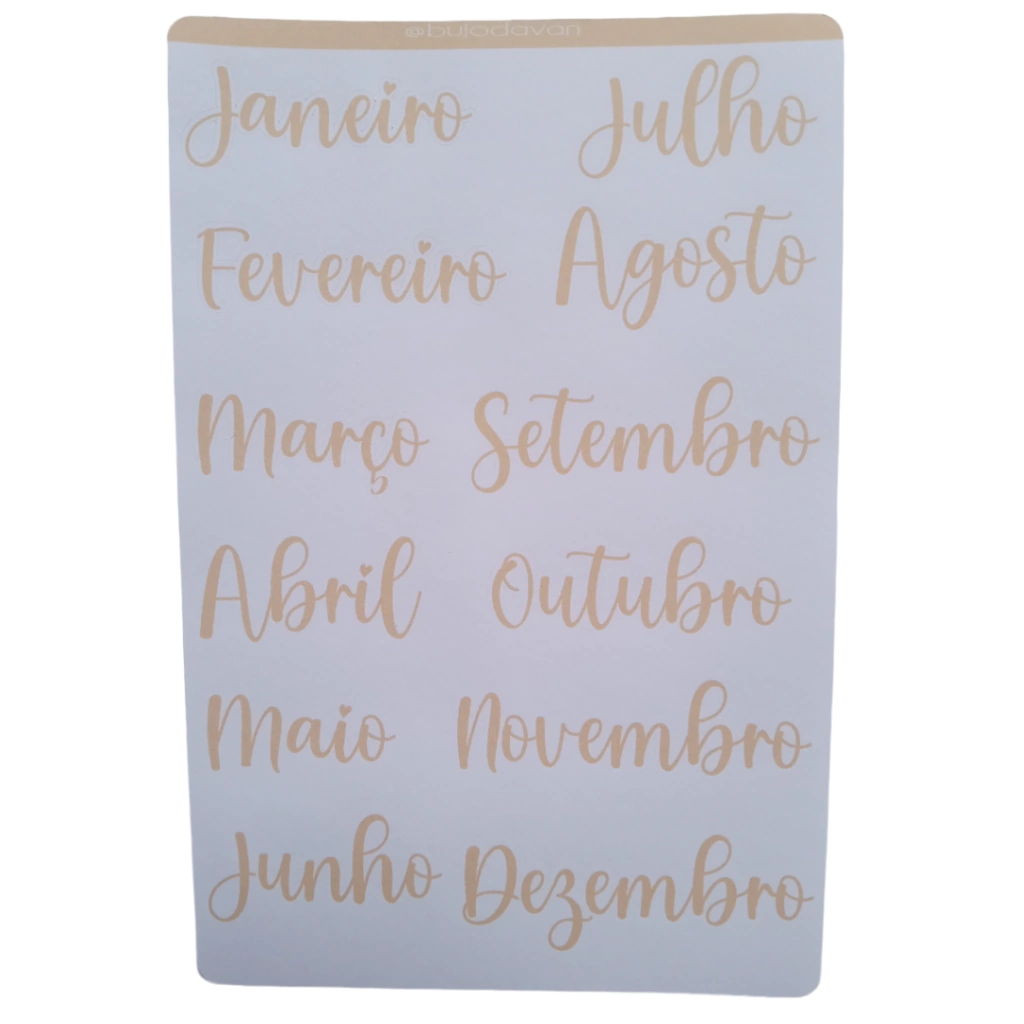 @bujodavan
Janeiro
Fevereiro
Março
Abril
Maio
Junho
Julho
Agosto
Setembro
Outubro
Novembro
Dezembro